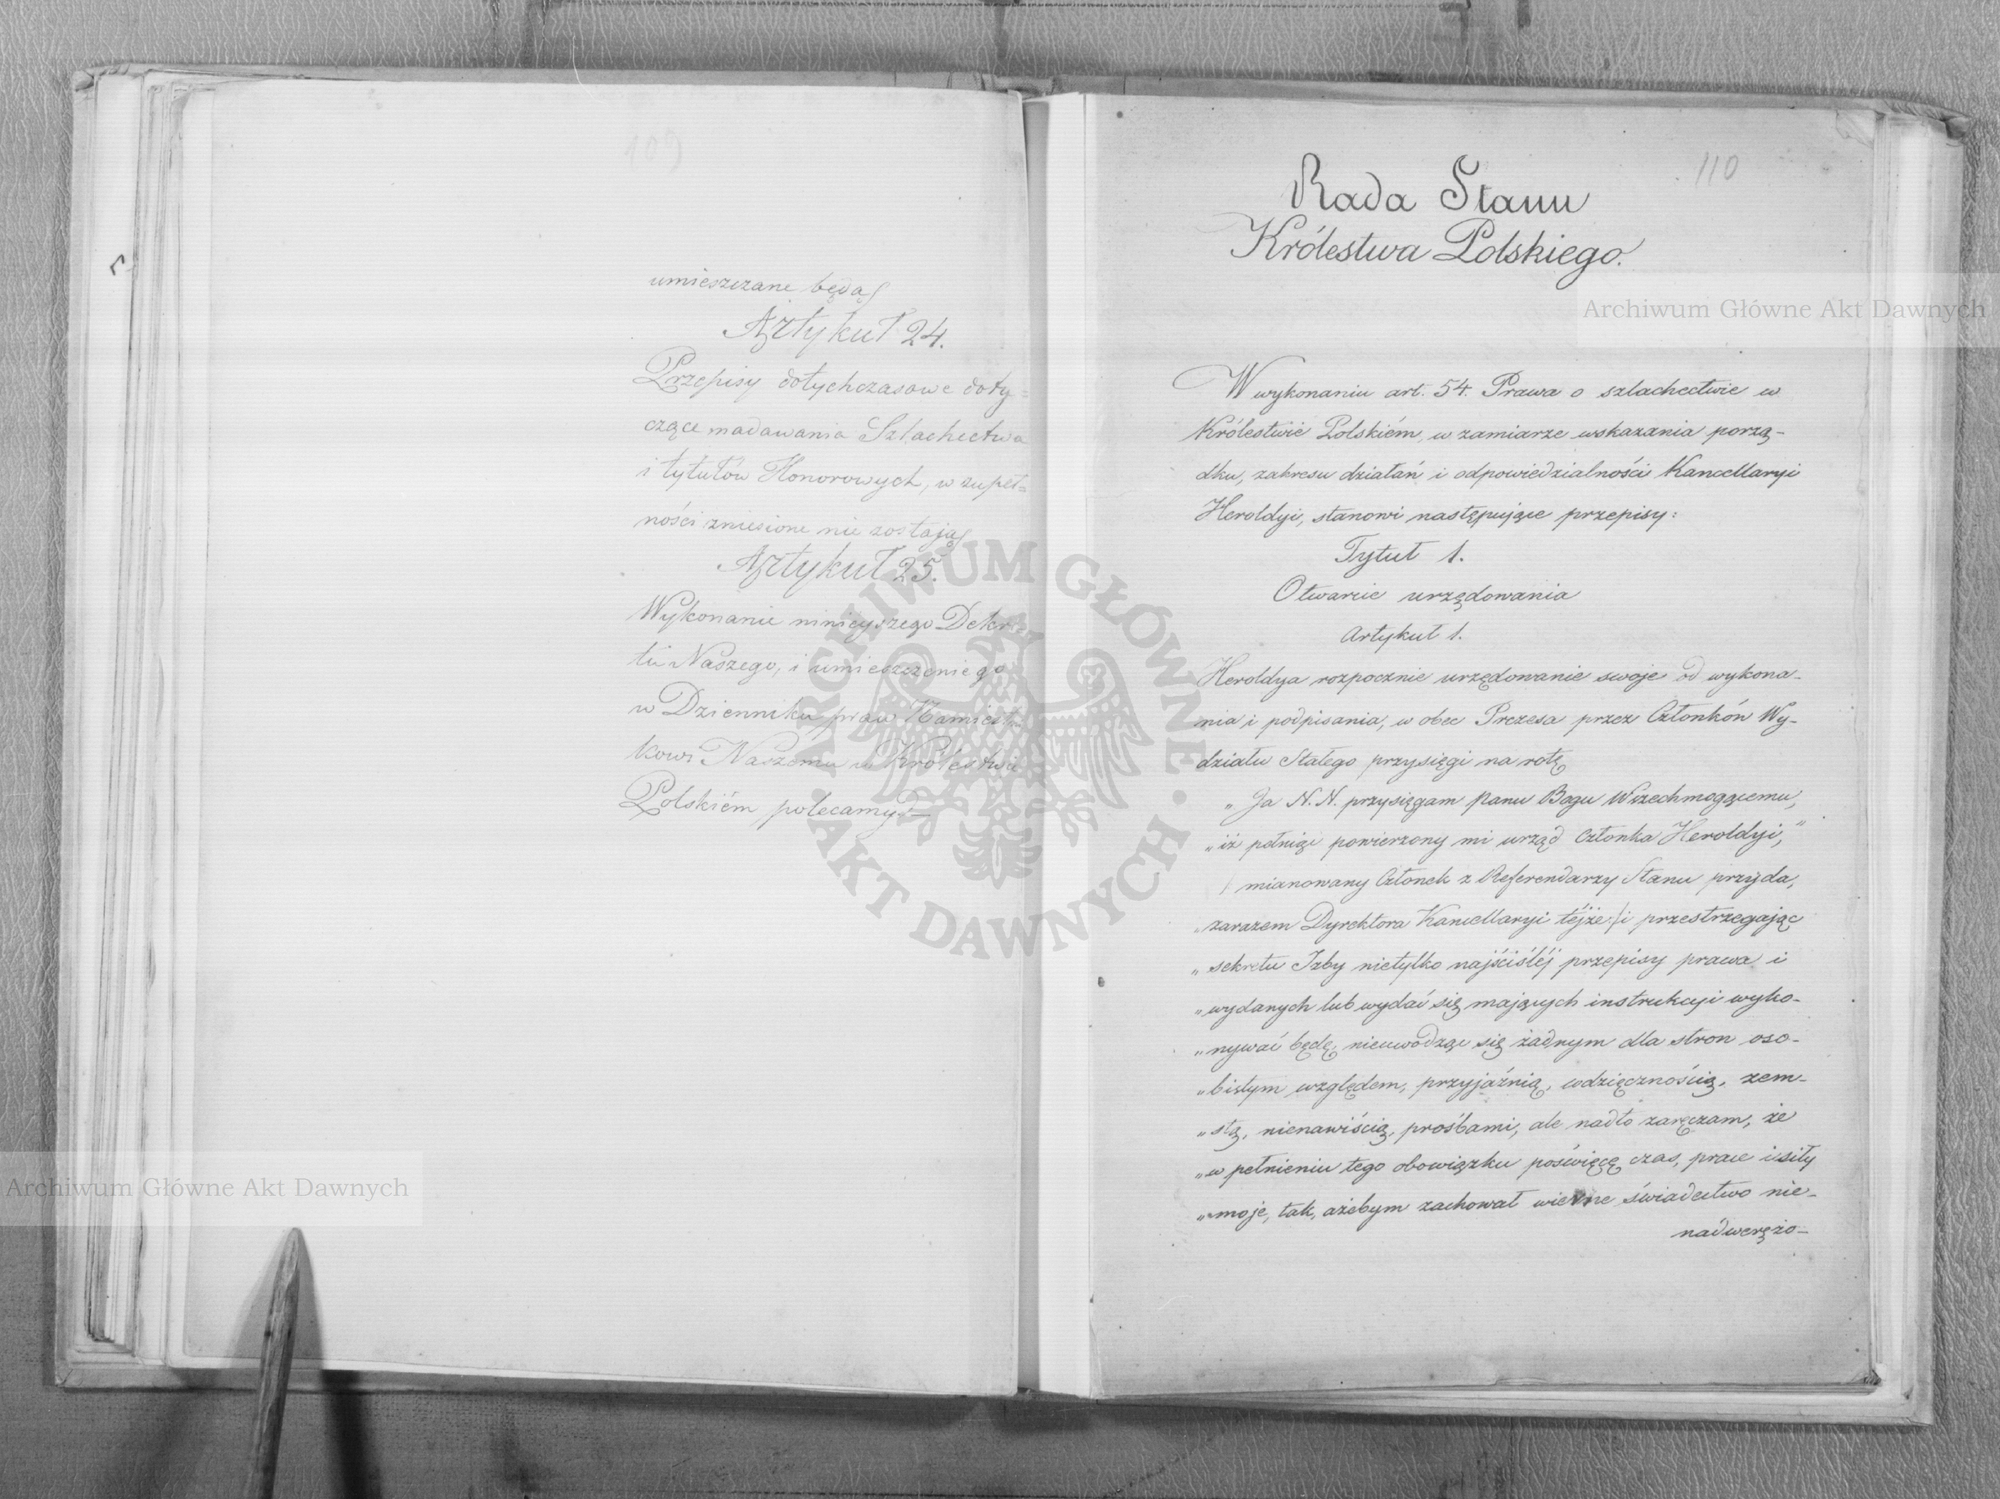 109
umieszczane będą
Artykuł 24.
Przepisy dotychczasowe doty=
czące nadawania Szlachectwa
i tytułów Honorowych, w zupeł=
ności zniesione nie zostają
Artykuł 25.
Wykonanie ninieyszego Dekre=
tu Naszego, i umieszczenie go
w Dzienniku praw Namiest=
kowi Naszemu w Królestwie
Polskiém polecamy
110
Rada Stanu
Królestwa Polskiego.
W wykonaniu art. 54. Prawa o szlachectwie w
Królestwie Polskiém, w zamiarze wskazania porzą-
dku, zakresu działań i odpowiedzialności Kancellaryi
Heroldyi, stanowi następujące przepisy:
Tytuł 1.
Otwarcie urzędowania
Artykuł 1.
Heroldya rozpocznie urzędowanie swoje od wykona-
nia i podpisania, w obec Prezesa przez Członków Wy-
działu Stałego przysięgi na rotę
„Ja N. N. przysięgam Panu Bogu Wszechmogącemu,
„iż pełniąc powierzony mi urząd Członka Heroldyi,"
/ mianowany Członek z Referendarzy Stanu przyda,
„zarazem Dyrektora Kancellaryi téjże:/ i przestrzegając
„sekretu Izby nietylko najściśléj przepisy prawa i
„wydanych lub wydać się mających instrukcyi wyko-
„nywać będę, nieuwodząc się żadnym dla stron oso-
„bistym względem, przyjaźnią, wdzięcznością, zem-
„stą, nienawiścią, prośbami, ale nadto zaręczam, że
„w pełnieniu tego obowiązku poświęcę czas, prace i siły
„moje, tak, ażebym zachował wierne świadectwo nie-
nadweręzo-
Archiwum Główne Akt Dawnych
Archiwum Główne Akt Dawnych
ARCHIWUM GŁÓWNE AKT DAWNYCH